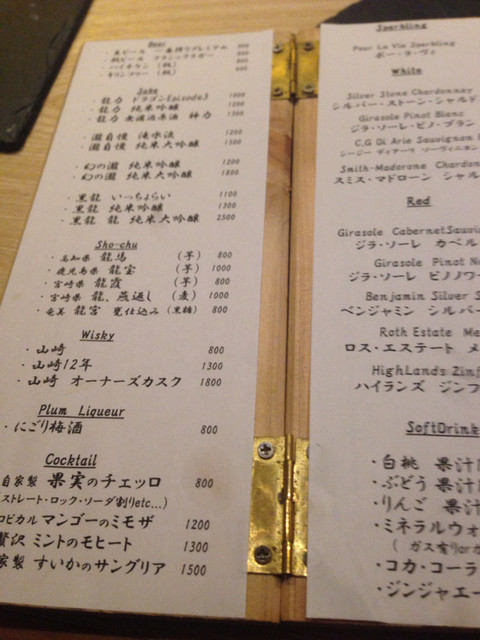 Beer
・生ビール 一番搾りプレミアム 800
・瓶ビール クラシックラガー 800
・ハイネケン (瓶) 800
・キリンフリー (瓶) 600
Sake
・龍力 ドラゴンEpisode3 1000
・龍力 純米吟醸 1200
・龍力 無濾過原酒 神力 1300
・瀧自慢 滝水流 1200
・瀧自慢 純米大吟醸 1500
・幻の瀧 純米吟醸 1200
・幻の瀧 純米大吟醸 1800
・黒龍 いっちょらい 1100
・黒龍 純米吟醸 1300
・黒龍 龍 純米大吟醸 2500
Sho-chu
・高知県 龍馬 (芋) 800
・鹿児島県 龍宝 (芋) 1000
・宮崎県 龍霞 (芋) 800
・宮崎県 龍、燕返し (麦) 1000
・奄美 龍宮 甕仕込み (黒糖) 800
Wisky
・山崎 800
・山崎12年 1300
・山崎 オーナーズカスク 1800
Plum Liqueur
・にごり梅酒 800
Cocktail
自家製 果実のチェッロ 800
ストレート・ロック・ソーダ割りetc...)
ロピカル マンゴーのミモザ 1200
贅沢 ミントのモヒート 1300
家製 すいかのサングリア 1500
Sparkling
Pour La Vie Sparkling
ポー・ラ・ヴィ
White
Silver Stone Chardonnay
シルバー・ストーン・シャルド
Girasole Pinot Blanc
ジラ・ソーレ・ピノ・ブラン
C.G Di Arie Sauvignon
シージー ディアーリ ソーヴィニヨン
Smith-Madorone Chardon
スミス・マドローン シャル
Red
Girasole CabernetSauvi
ジラ・ソーレ カベル
Girasole Pinot No
ジラ・ソーレ ピノノワ
Benjamin Silver S
ベンジャミン シルバー
Roth Estate Me
ロス・エステート メ
HighLands Zinf
ハイランズ ジンフ
SoftDrink
・白桃 果汁
・ぶどう 果汁
・りんご 果汁
・ミネラルウォ
( ガス有りorガ
・コカ・コーラ
・ジンジャエー